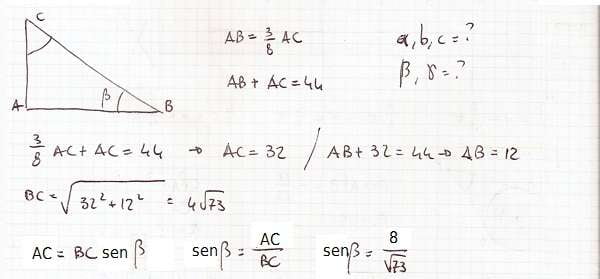 C
AB = 3/8 AC
a, b, c = ?
β, γ = ?
AB + AC = 44
A
β
B
3/8 AC + AC = 44 → AC = 32 / AB + 32 = 44 → AB = 12
BC = √(32² + 12²) = 4√73
AC = BC sen β senβ = AC/BC senβ = 8/√73